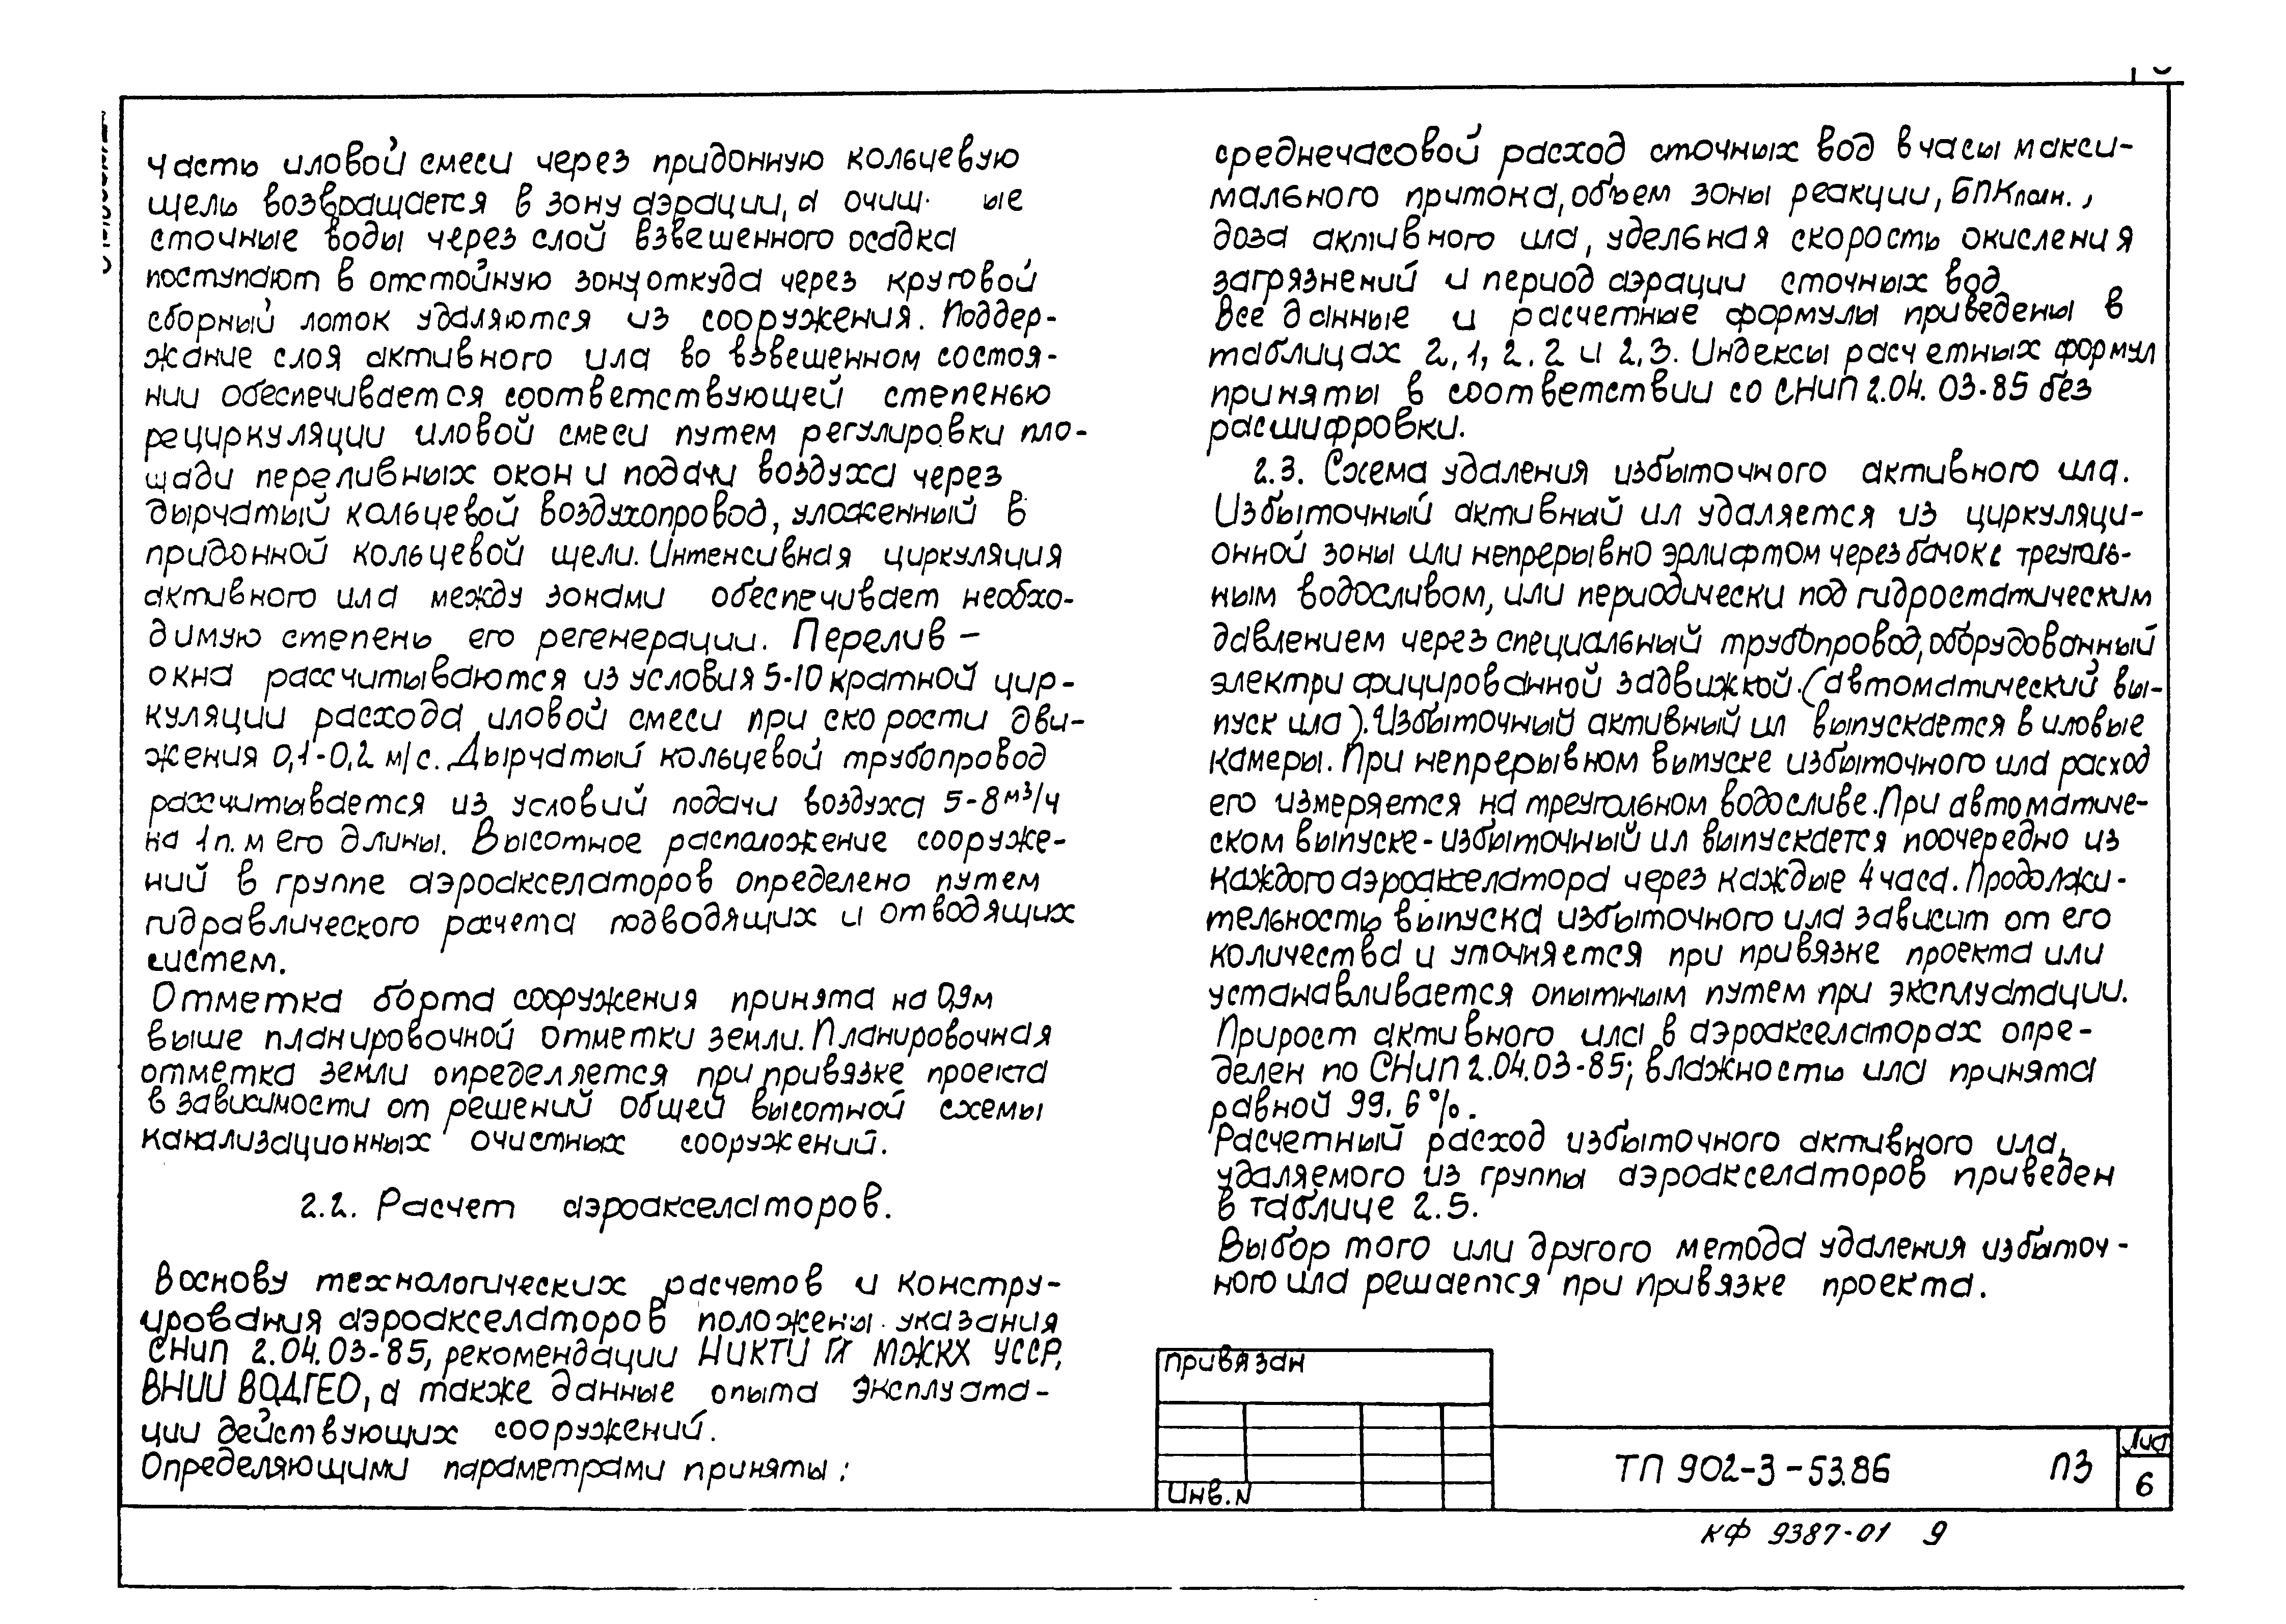 часть иловой смеси через придонную кольцевую
щель возвращается в зону аэрации, а очищ ые
сточные воды через слой взвешенного осадка
поступают в отстойную зону откуда через круговой
сборный лоток удаляются из сооружения. Поддер-
жание слоя активного ила во взвешенном состоя-
нии обеспечивается соответствующей степенью
рециркуляции иловой смеси путем регулировки пло-
щади переливных окон и подачи воздуха через
дырчатый кольцевой воздухопровод, уложенный в
придонной кольцевой щели. Интенсивная циркуляция
активного ила между зонами обеспечивает необхо-
димую степень его регенерации. Перелив-
окна рассчитываются из условия 5-10 кратной цир-
куляции расхода иловой смеси при скорости дви-
жения 0,1-0,2 м/с. Дырчатый кольцевой трубопровод
рассчитывается из условий подачи воздуха 5-8 м³/ч
на 1 п. м его длины. Высотное расположение сооруже-
ний в группе аэроакселаторов определено путем
гидравлического расчета подводящих и отводящих
систем.
Отметка борта сооружения принята на 0,9м
выше планировочной отметки земли. Планировочная
отметка земли определяется при привязке проекта
в зависимости от решений общей высотной схемы
канализационных очистных сооружений.
2.2. Расчет аэроакселаторов.
В основу технологических расчетов и констру-
ирования аэроакселаторов положены указания
СНиП 2.04.03-85, рекомендации НИКТИ ГХ МЖКХ УССР,
ВНИИ ВОДГЕО, а также данные опыта эксплуата-
ции действующих сооружений.
Определяющими параметрами приняты:
среднечасовой расход сточных вод в часы макси-
мального притока, объем зоны реакции, БПКполн.,
доза активного ила, удельная скорость окисления
загрязнений и период аэрации сточных вод
Все данные и расчетные формулы приведены в
таблицах 2,1, 2.2 и 2,3. Индексы расчетных формул
приняты в соответствии со СНиП 2.04.03-85 без
расшифровки.
2.3. Схема удаления избыточного активного ила.
Избыточный активный ил удаляется из циркуляци-
онной зоны или непрерывно эрлифтом через бачок с треуголь-
ным водосливом, или периодически под гидростатическим
давлением через специальный трубопровод, оборудованный
электрифицированной задвижкой. (автоматический вы-
пуск ила). Избыточный активный ил выпускается в иловые
камеры. При непрерывном выпуске избыточного ила расход
его измеряется на треугольном водосливе. При автоматиче-
ском выпуске - избыточный ил выпускается поочередно из
каждого аэроакселатора через каждые 4 часа. Продолжи-
тельность выпуска избыточного ила зависит от его
количества и уточняется при привязке проекта или
устанавливается опытным путем при эксплуатации.
Прирост активного ила в аэроакселаторах опре-
делен по СНиП 2.04.03-85; влажность ила принята
равной 99.6%.
Расчетный расход избыточного активного ила,
удаляемого из группы аэроакселаторов приведен
в таблице 2.5.
Выбор того или другого метода удаления избыточ-
ного ила решается при привязке проекта.
Привязан
Инв.N
ТП 902-3-53.86 ПЗ
Лист
6
КФ 9387-01 9